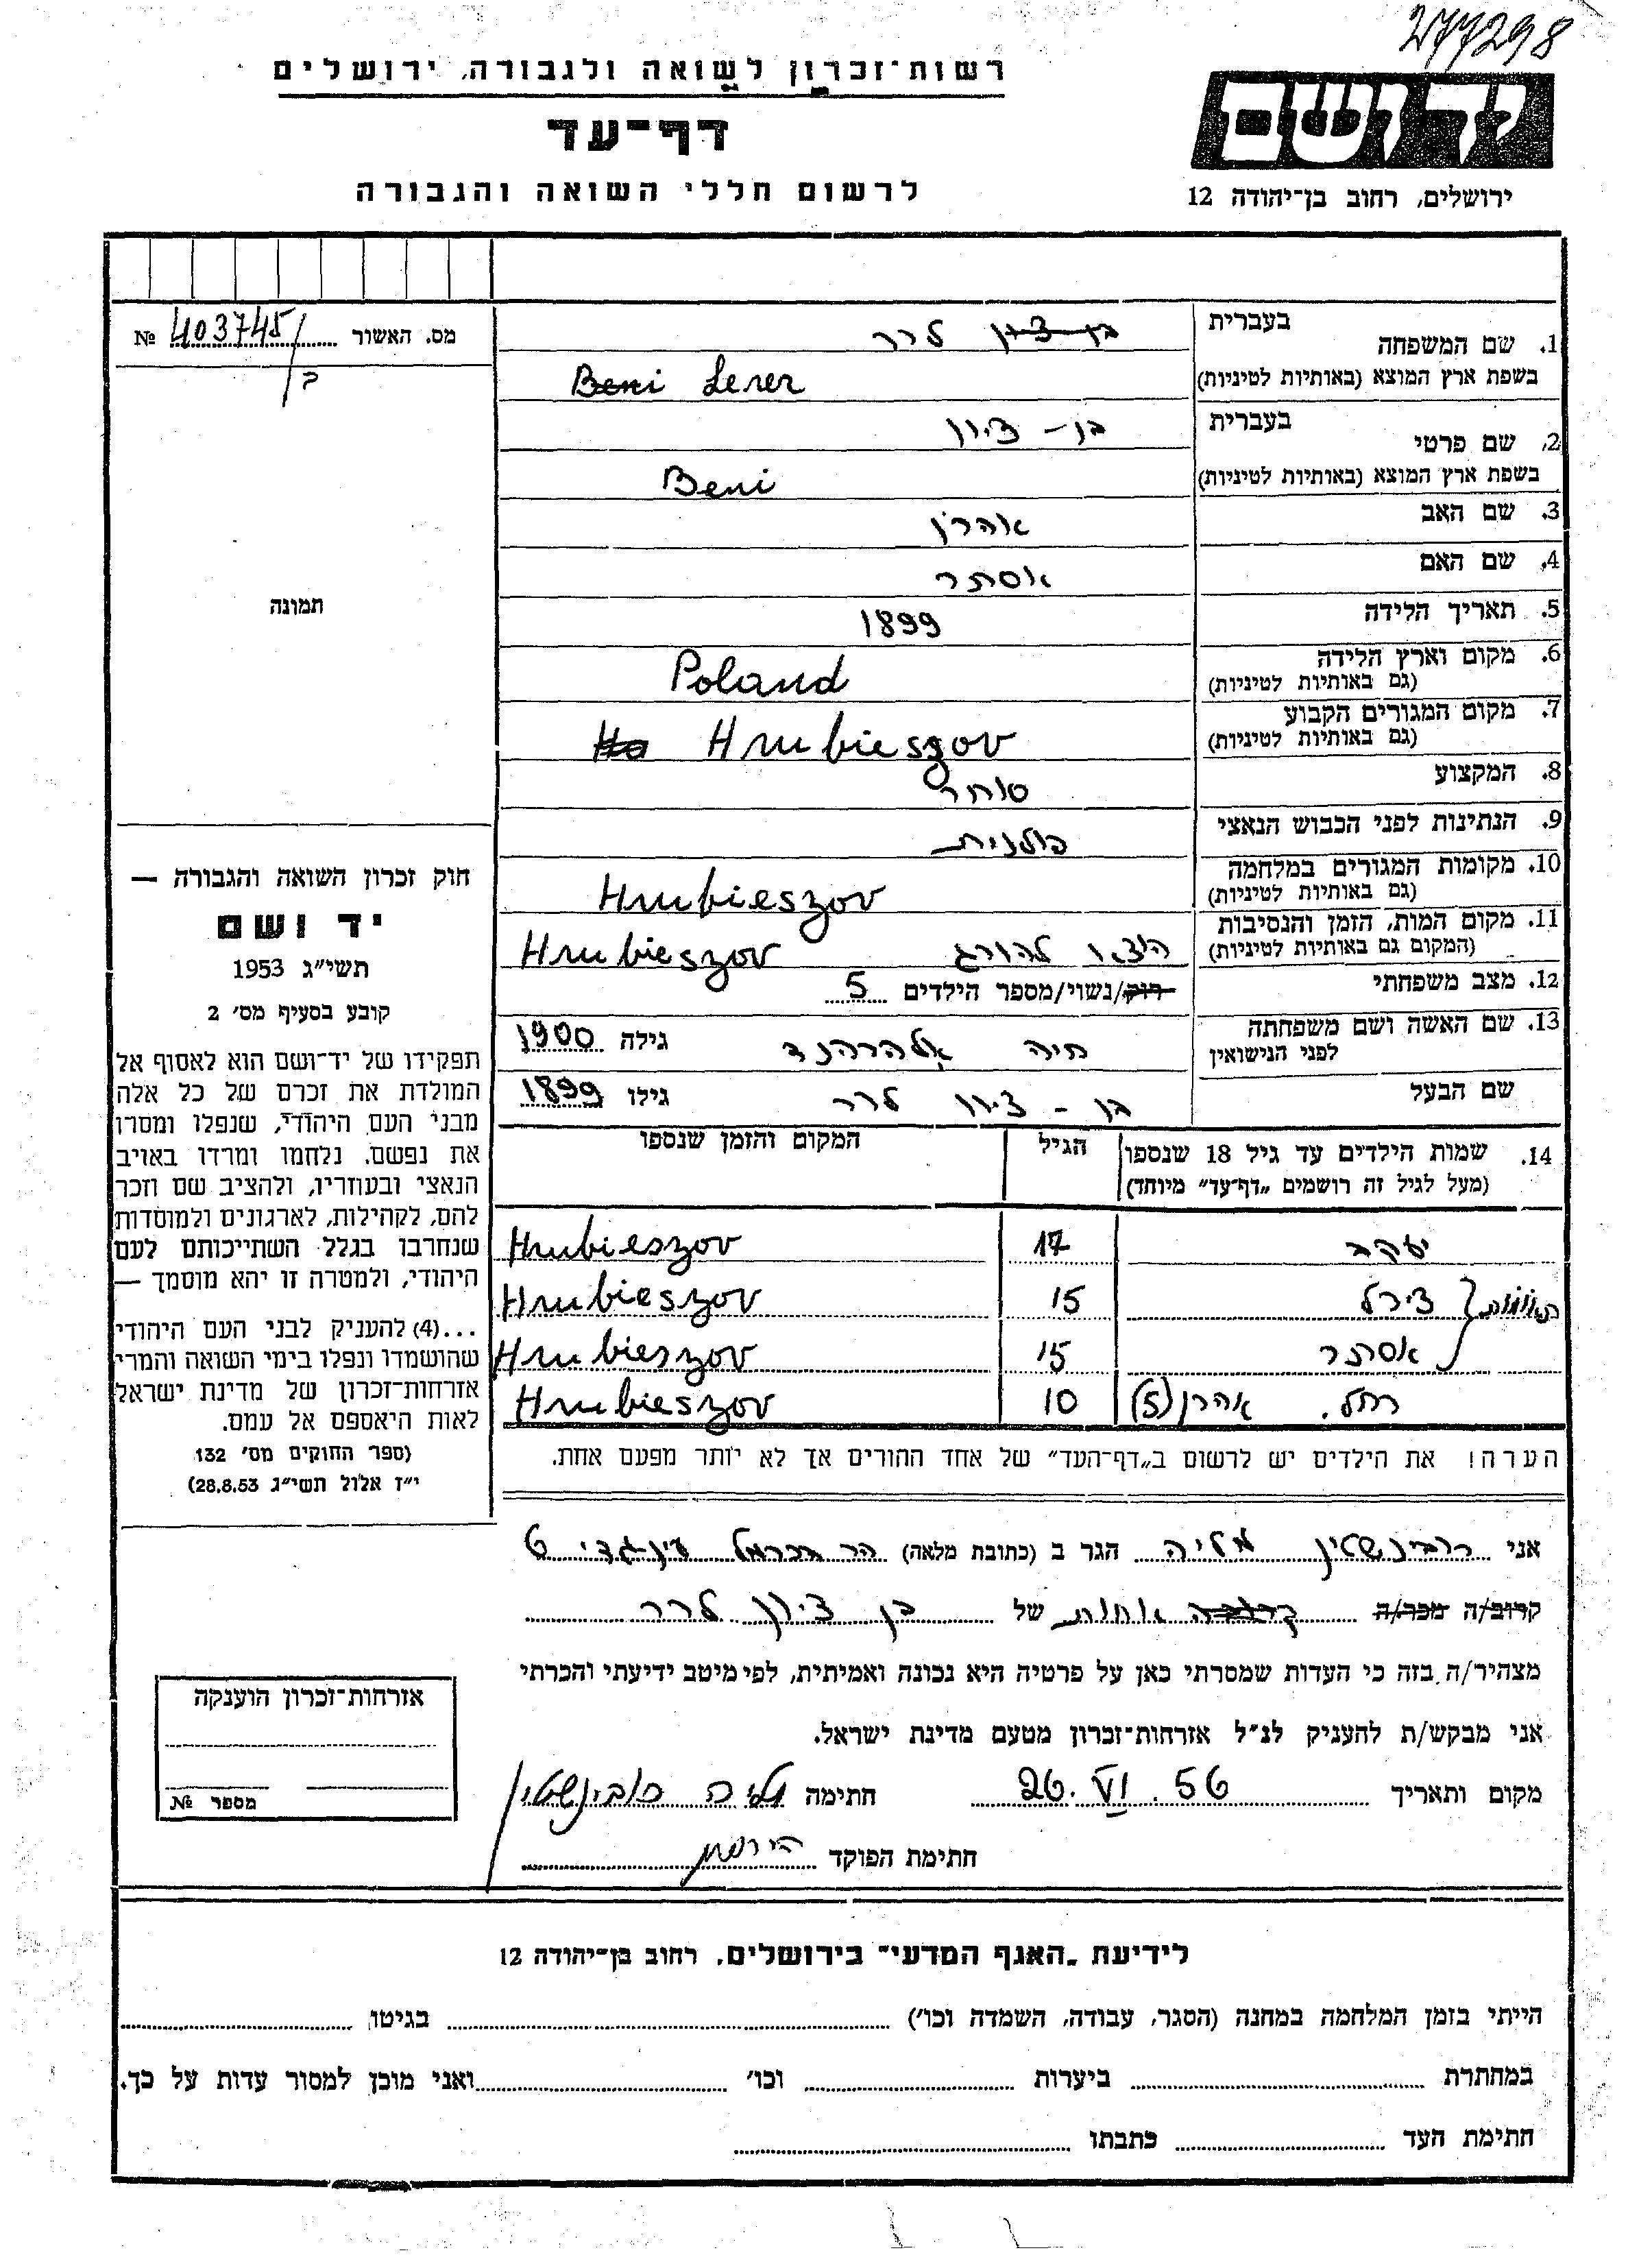 277298
רשות־זכרון לשואה ולגבורה, ירושלים
דף־עד
לרשום חללי השואה והגבורה
יד ושם
ירושלים, רחוב בן־יהודה 12
מס. האשור 403745 №
1. שם המשפחה בעברית בן ציון לרר
בשפת ארץ המוצא (באותיות לטיניות) Beni Lerer
2. שם פרטי בעברית בן - ציון
בשפת ארץ המוצא (באותיות לטיניות) Beni
3. שם האב אהרון
4. שם האם אסתר
5. תאריך הלידה 1899
6. מקום וארץ הלידה (גם באותיות לטיניות) Poland
7. מקום המגורים הקבוע (גם באותיות לטיניות) Hrubieszov
8. המקצוע סוחר
9. הנתינות לפני הכבוש הנאצי פולנית
10. מקומות המגורים במלחמה (גם באותיות לטיניות) Hrubieszov
11. מקום המות, הזמן והנסיבות (המקום גם באותיות לטיניות) הוצאו להורג Hrubieszov
12. מצב משפחתי רוק/נשוי/מספר הילדים 5
13. שם האשה ושם משפחתה לפני הנישואין חיה גילה 1900
שם הבעל בן - ציון לרר גילו 1899
14. שמות הילדים עד גיל 18 שנספו הגיל המקום והזמן שנספו
(מעל לגיל זה רושמים „דף־עד" מיוחד)
יעקב 17 Hrubieszov
תאומות צירל 15 Hrubieszov
אסתר 15 Hrubieszov
רחל. אהרן (5) 10 Hrubieszov
הערה! את הילדים יש לרשום ב„דף־העד" של אחד ההורים אך לא יותר מפעם אחת.
תמונה
חוק זכרון השואה והגבורה —
יד ושם
תשי״ג 1953
קובע בסעיף מס׳ 2
תפקידו של יד־ושם הוא לאסוף אל
המולדת את זכרם של כל אלה
מבני העם היהודי, שנפלו ומסרו
את נפשם, נלחמו ומרדו באויב
הנאצי ובעוזריו, ולהציב שם וזכר
להם, לקהילות, לארגונים ולמוסדות
שנחרבו בגלל השתייכותם לעם
היהודי, ולמטרה זו יהא מוסמך —
...(4) להעניק לבני העם היהודי
שהושמדו ונפלו בימי השואה והמרי
אזרחות־זכרון של מדינת ישראל
לאות היאספם אל עמם.
(ספר החוקים מס׳ 132
י״ז אלול תשי״ג 28.8.53)
אני רובינשטין מליה הגר ב (כתובת מלאה) הר הכרמל עין-גדי 6
קרוב/ה מכר/ה קרובה אחות של בן ציון לרר
מצהיר/ה בזה כי העדות שמסרתי כאן על פרטיה היא נכונה ואמיתית, לפי מיטב ידיעתי והכרתי
אני מבקש/ת להעניק לנ״ל אזרחות־זכרון מטעם מדינת ישראל.
מקום ותאריך 26. VI. 56 חתימה מליה רובינשטין
חתימת הפוקד
אזרחות־זכרון הוענקה
מספר №
לידיעת „האגף המדעי" בירושלים, רחוב בן־יהודה 12
הייתי בזמן המלחמה במחנה (הסגר, עבודה, השמדה וכו׳) בגיטו
במחתרת ביערות וכו׳ ואני מוכן למסור עדות על כך.
חתימת העד כתבתו